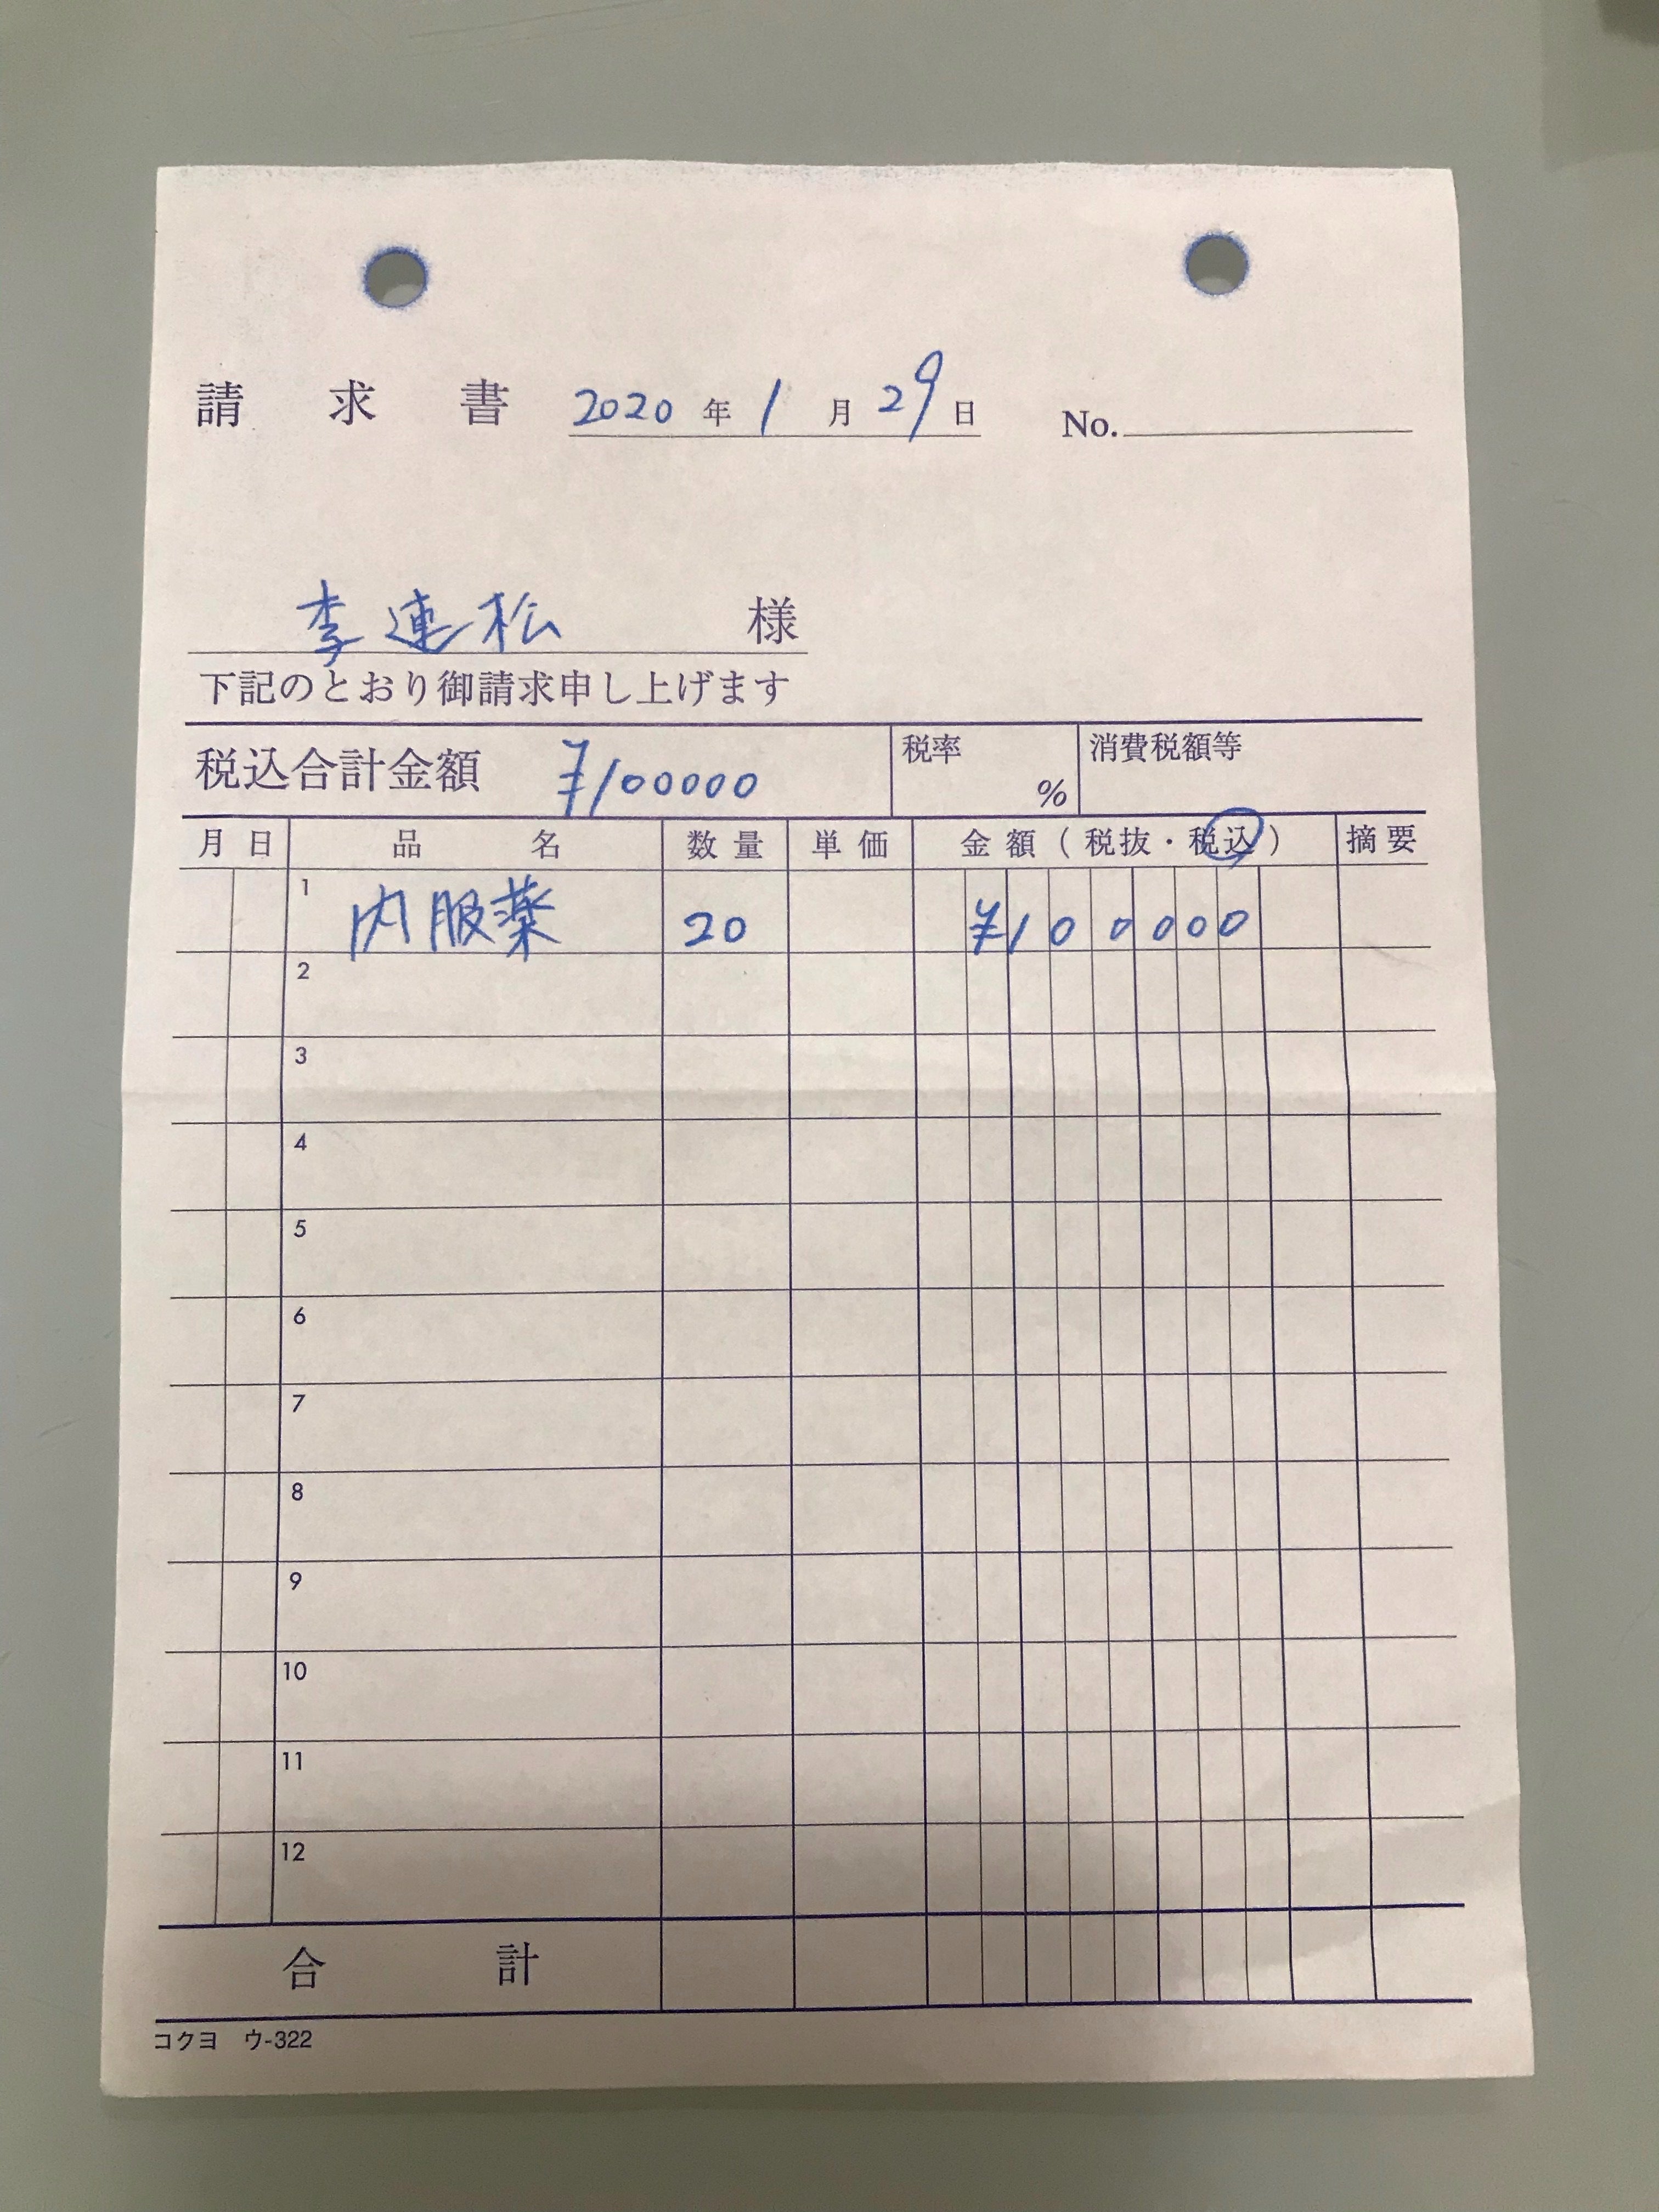 請求書 2020年1月29日 No.
李連松 様
下記のとおり御請求申し上げます
税込合計金額 ¥100000 税率 % 消費税額等
月日 品名 数量 単価 金額(税抜・税込) 摘要
1 内服薬 20 ¥100000
2
3
4
5
6
7
8
9
10
11
12
合計
コクヨ ウ-322